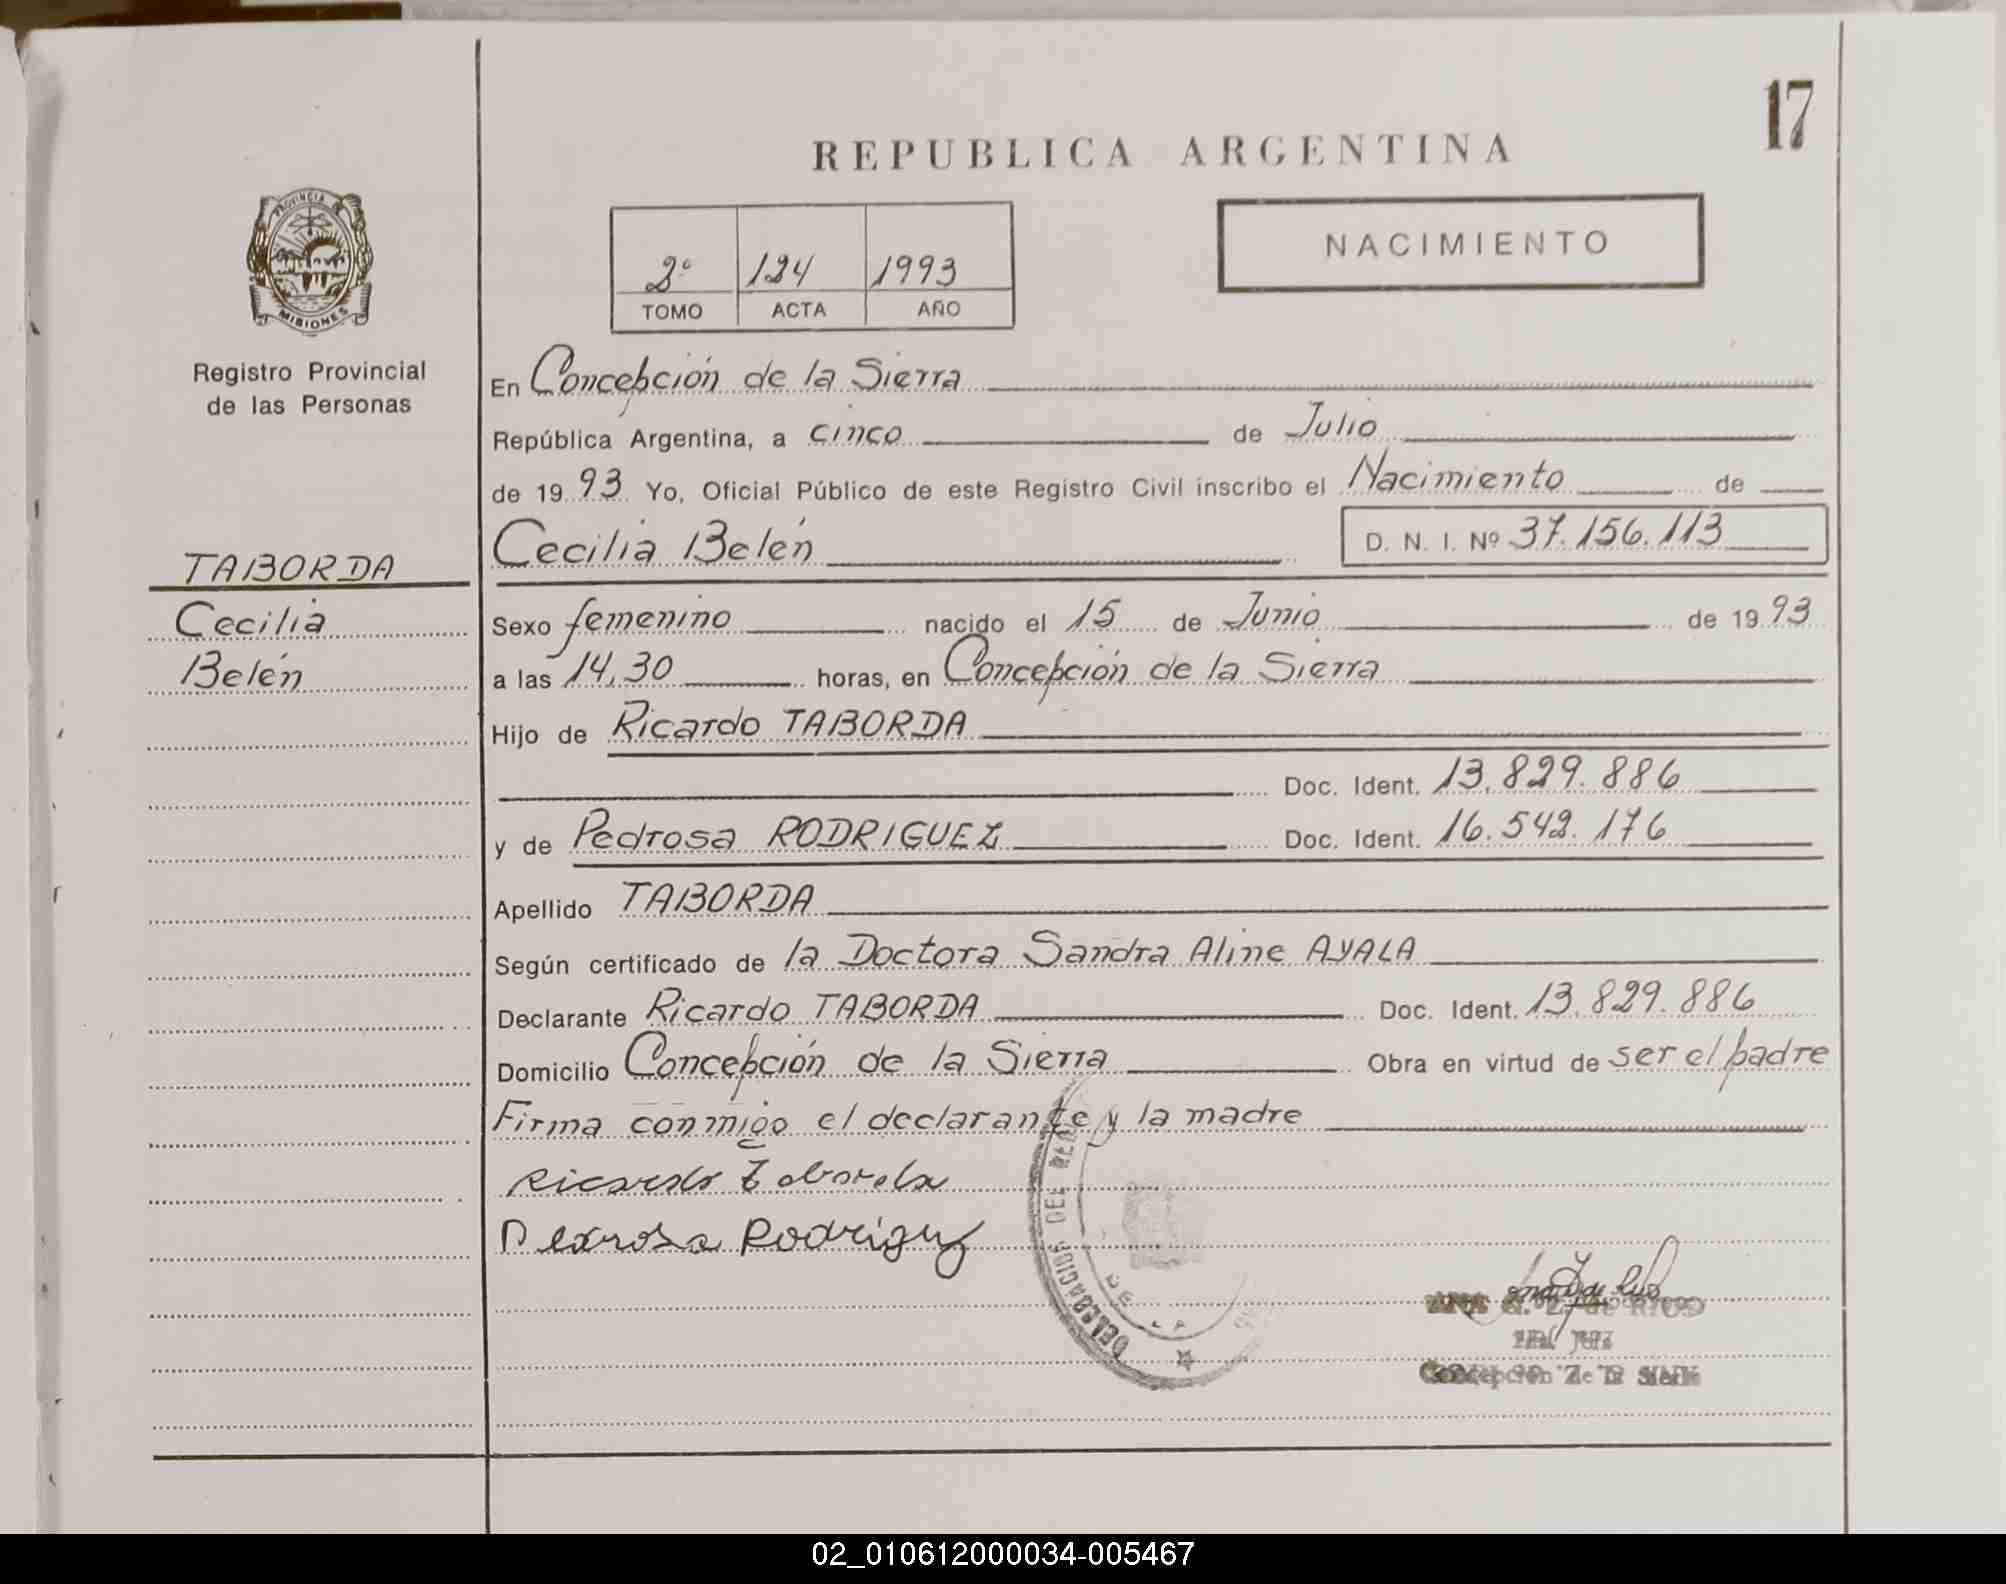 17
REPUBLICA ARGENTINA
PROVINCIA DE
MISIONES
Registro Provincial
de las Personas
2º 124 1993
TOMO ACTA AÑO
NACIMIENTO
En Concepción de la Sierra
República Argentina, a cinco de Julio
de 1993 Yo, Oficial Público de este Registro Civil inscribo el Nacimiento de
Cecilia Belén D. N. I. Nº 37.156.113
TABORDA
Cecilia
Belén
Sexo femenino nacido el 15 de Junio de 1993
a las 14,30 horas, en Concepción de la Sierra
Hijo de Ricardo TABORDA
Doc. Ident. 13.829.886
y de Pedrosa RODRIGUEZ Doc. Ident. 16.542.176
Apellido TABORDA
Según certificado de la Doctora Sandra Aline AYALA
Declarante Ricardo TABORDA Doc. Ident. 13.829.886
Domicilio Concepción de la Sierra Obra en virtud de ser el padre
Firma conmigo el declarante y la madre
Ricardo Taborda
Rodriguz
DELEGACION DEL
DE LA
Concepción de la
02_010612000034-005467